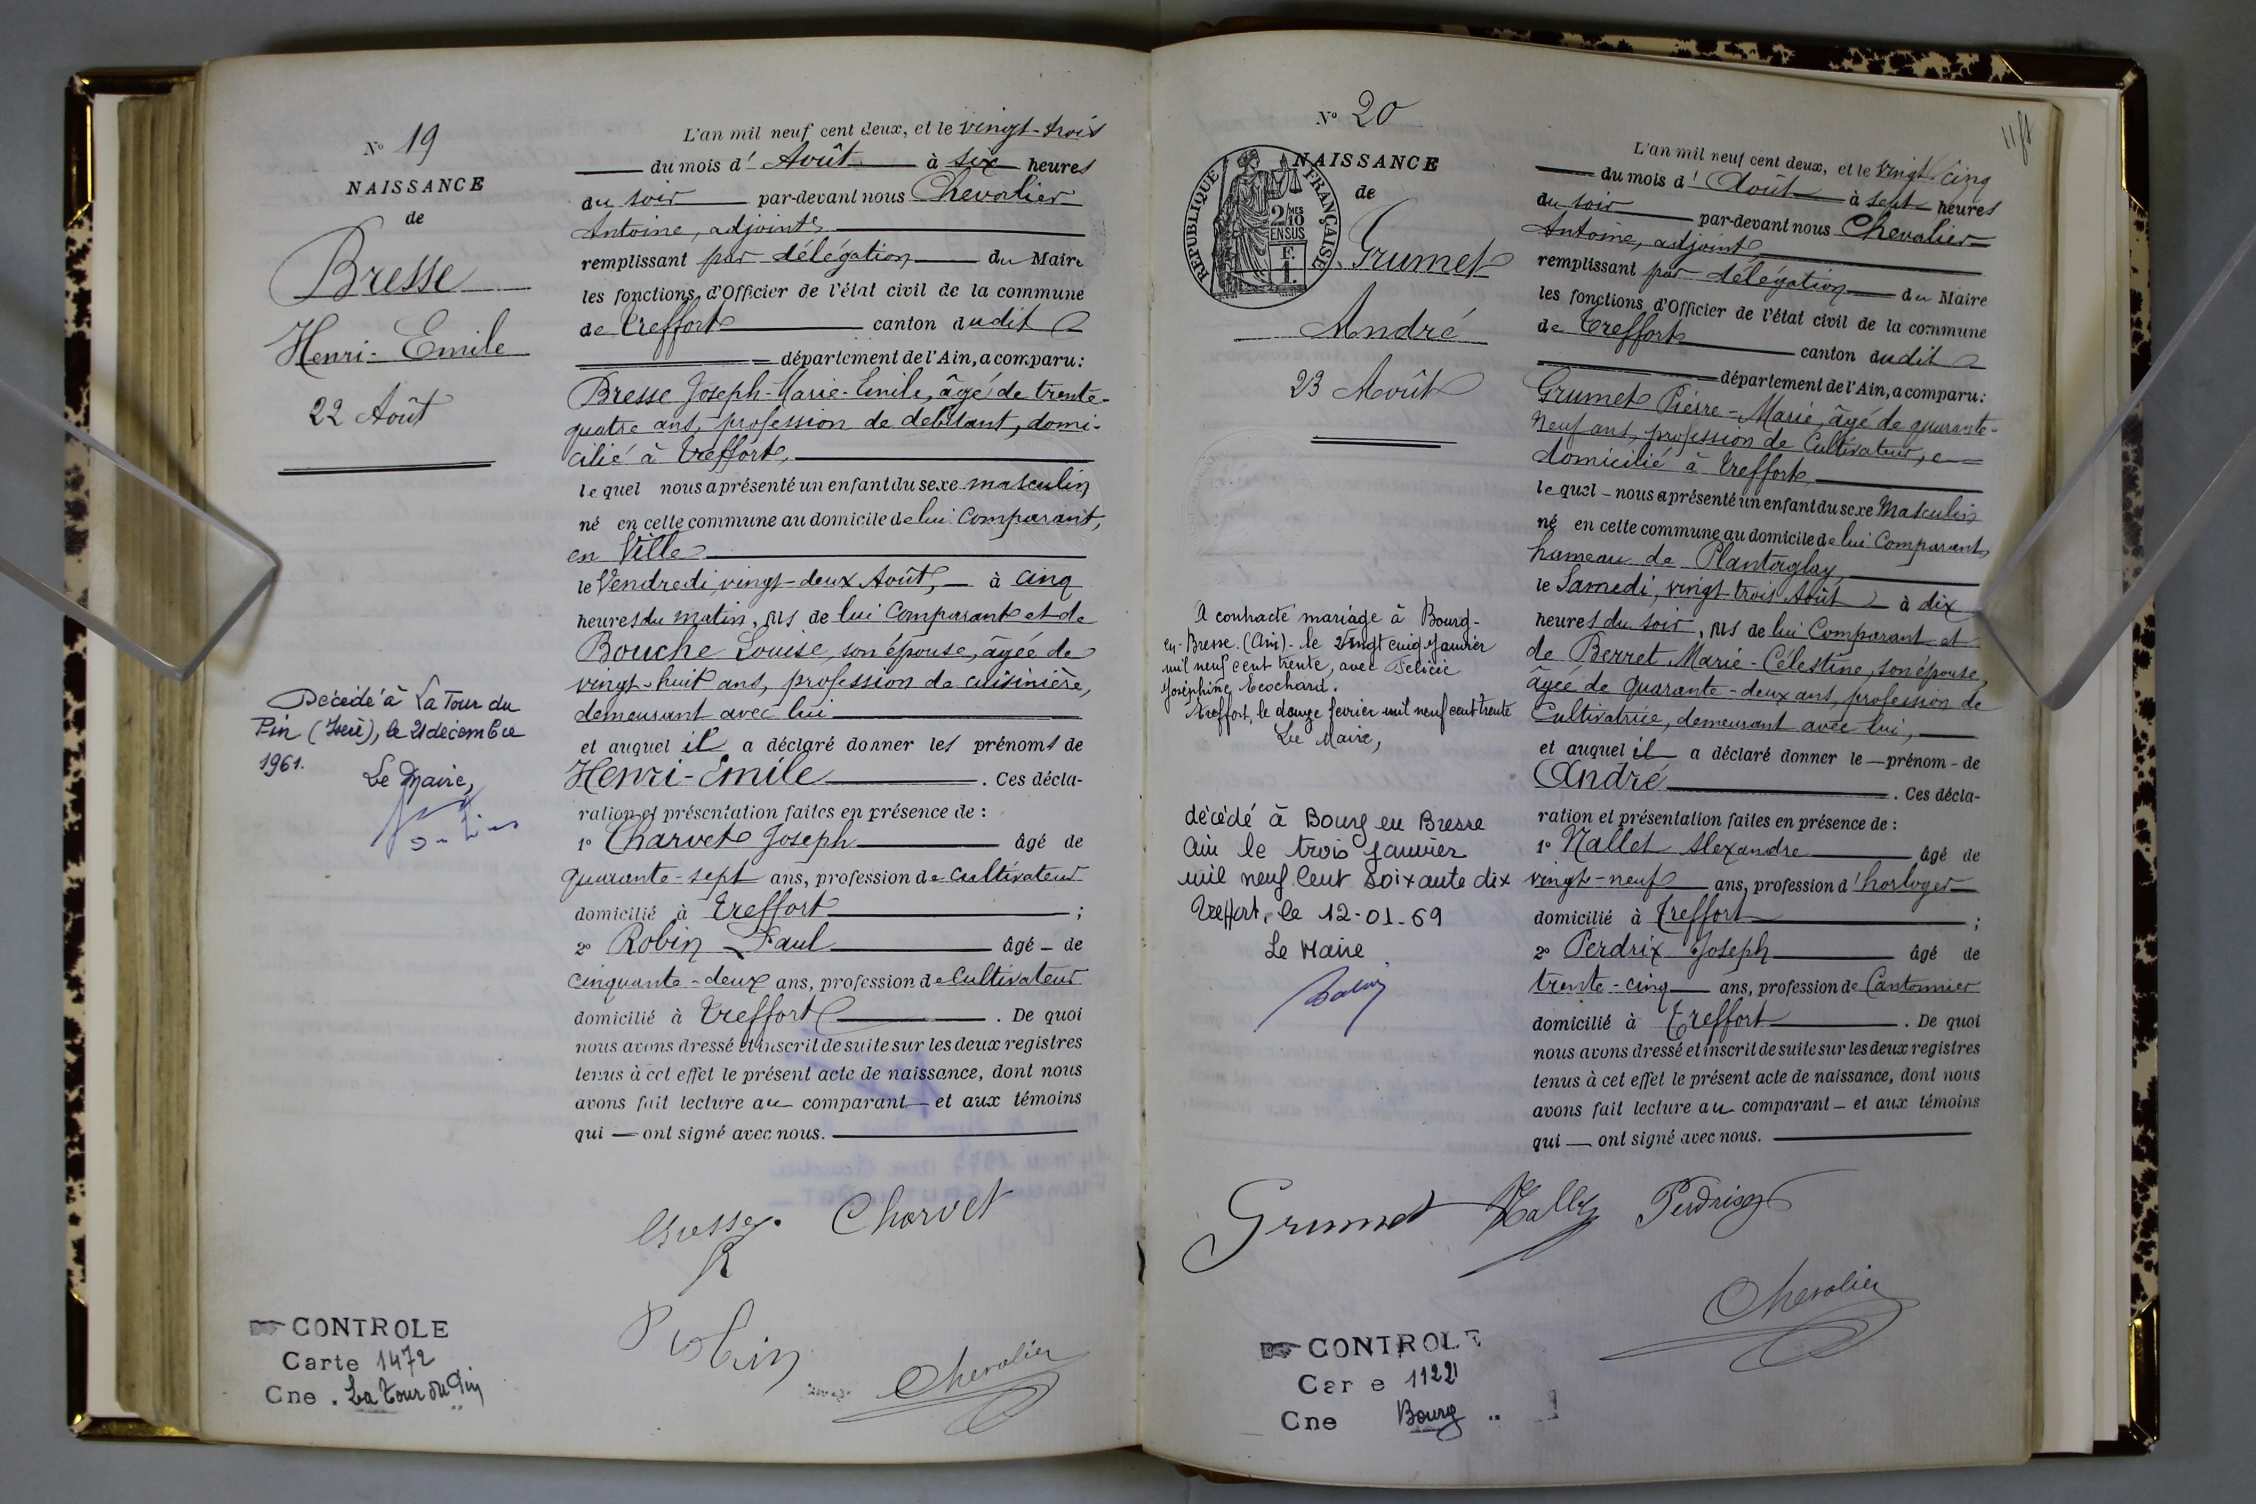 N° 19
NAISSANCE
de
Bresse
Henri-Emile
22 Août
Décédé à La Tour du
Pin (Isère), le 21 décembre
1961.
Le Maire,
CONTROLE
Carte 1472
Cne. La Tour du Pin
L'an mil neuf cent deux, et le vingt-trois
du mois d'Août à six heures
du soir par-devant nous Chevalier
Antoine, adjoint,
remplissant par délégation du Maire
les fonctions d'Officier de l'état civil de la commune
de Treffort canton dudit
département de l'Ain, a comparu:
Bresse Joseph-Marie-Emile, âgé de trente-
quatre ans, profession de débitant, domi-
cilié à Treffort,
lequel nous a présenté un enfant du sexe masculin
né en cette commune au domicile de lui Comparant,
en Ville
le Vendredi, vingt-deux Août, à cinq
heures du matin, fils de lui Comparant et de
Bouche Louise, son épouse, âgée de
vingt-huit ans, profession de cuisinière,
demeurant avec lui
et auquel il a déclaré donner les prénoms de
Henri-Emile. Ces décla-
ration et présentation faites en présence de:
1° Charvet Joseph âgé de
quarante-sept ans, profession de cultivateur
domicilié à Treffort;
2° Robin Paul âgé - de
cinquante-deux ans, profession de Cultivateur
domicilié à Treffort. De quoi
nous avons dressé et inscrit de suite sur les deux registres
tenus à cet effet le présent acte de naissance, dont nous
avons fait lecture au comparant et aux témoins
qui — ont signé avec nous.
Bresse. Charvet
Robin Chevalier
N° 20
RÉPUBLIQUE FRANÇAISE
2/10 MES
EN SUS
F.
1.
NAISSANCE
de
Grumet
André
23 Août
A contracté mariage à Bourg-
en-Bresse (Ain) - le vingt cinq Janvier
mil neuf cent trente, avec Félicie
Joséphine Ecochard.
Treffort, le douze février mil neuf cent trente
Le Maire,
décédé à Bourg en Bresse
Ain le trois janvier
mil neuf cent soixante dix
Treffort, le 12-01-69
Le Maire
CONTROLE
Car e 1122
Cne Bourg
L'an mil neuf cent deux, et le vingt-cinq
du mois d'Août à sept heures
du soir par-devant nous Chevalier
Antoine, adjoint,
remplissant par délégation du Maire
les fonctions d'Officier de l'état civil de la commune
de Treffort canton dudit
département de l'Ain, a comparu:
Grumet Pierre-Marie, âgé de quarante-
neuf ans, profession de Cultivateur,
domicilié à Treffort
lequel - nous a présenté un enfant du sexe Masculin
né en cette commune au domicile de lui Comparant,
hameau de Plantaglay,
le Samedi, vingt-trois Août à dix
heures du soir, fils de lui Comparant et
de Berret Marie-Célestine, son épouse,
âgée de quarante-deux ans, profession de
Cultivatrice, demeurant avec lui,
et auquel il a déclaré donner le — prénom - de
André. Ces décla-
ration et présentation faites en présence de:
1° Nallet Alexandre âgé de
vingt-neuf ans, profession d'horloger
domicilié à Treffort;
2° Perdrix Joseph âgé de
trente-cinq ans, profession de Cantonnier
domicilié à Treffort. De quoi
nous avons dressé et inscrit de suite sur les deux registres
tenus à cet effet le présent acte de naissance, dont nous
avons fait lecture au comparant — et aux témoins
qui — ont signé avec nous.
Grumet Nallet Perdrix
Chevalier